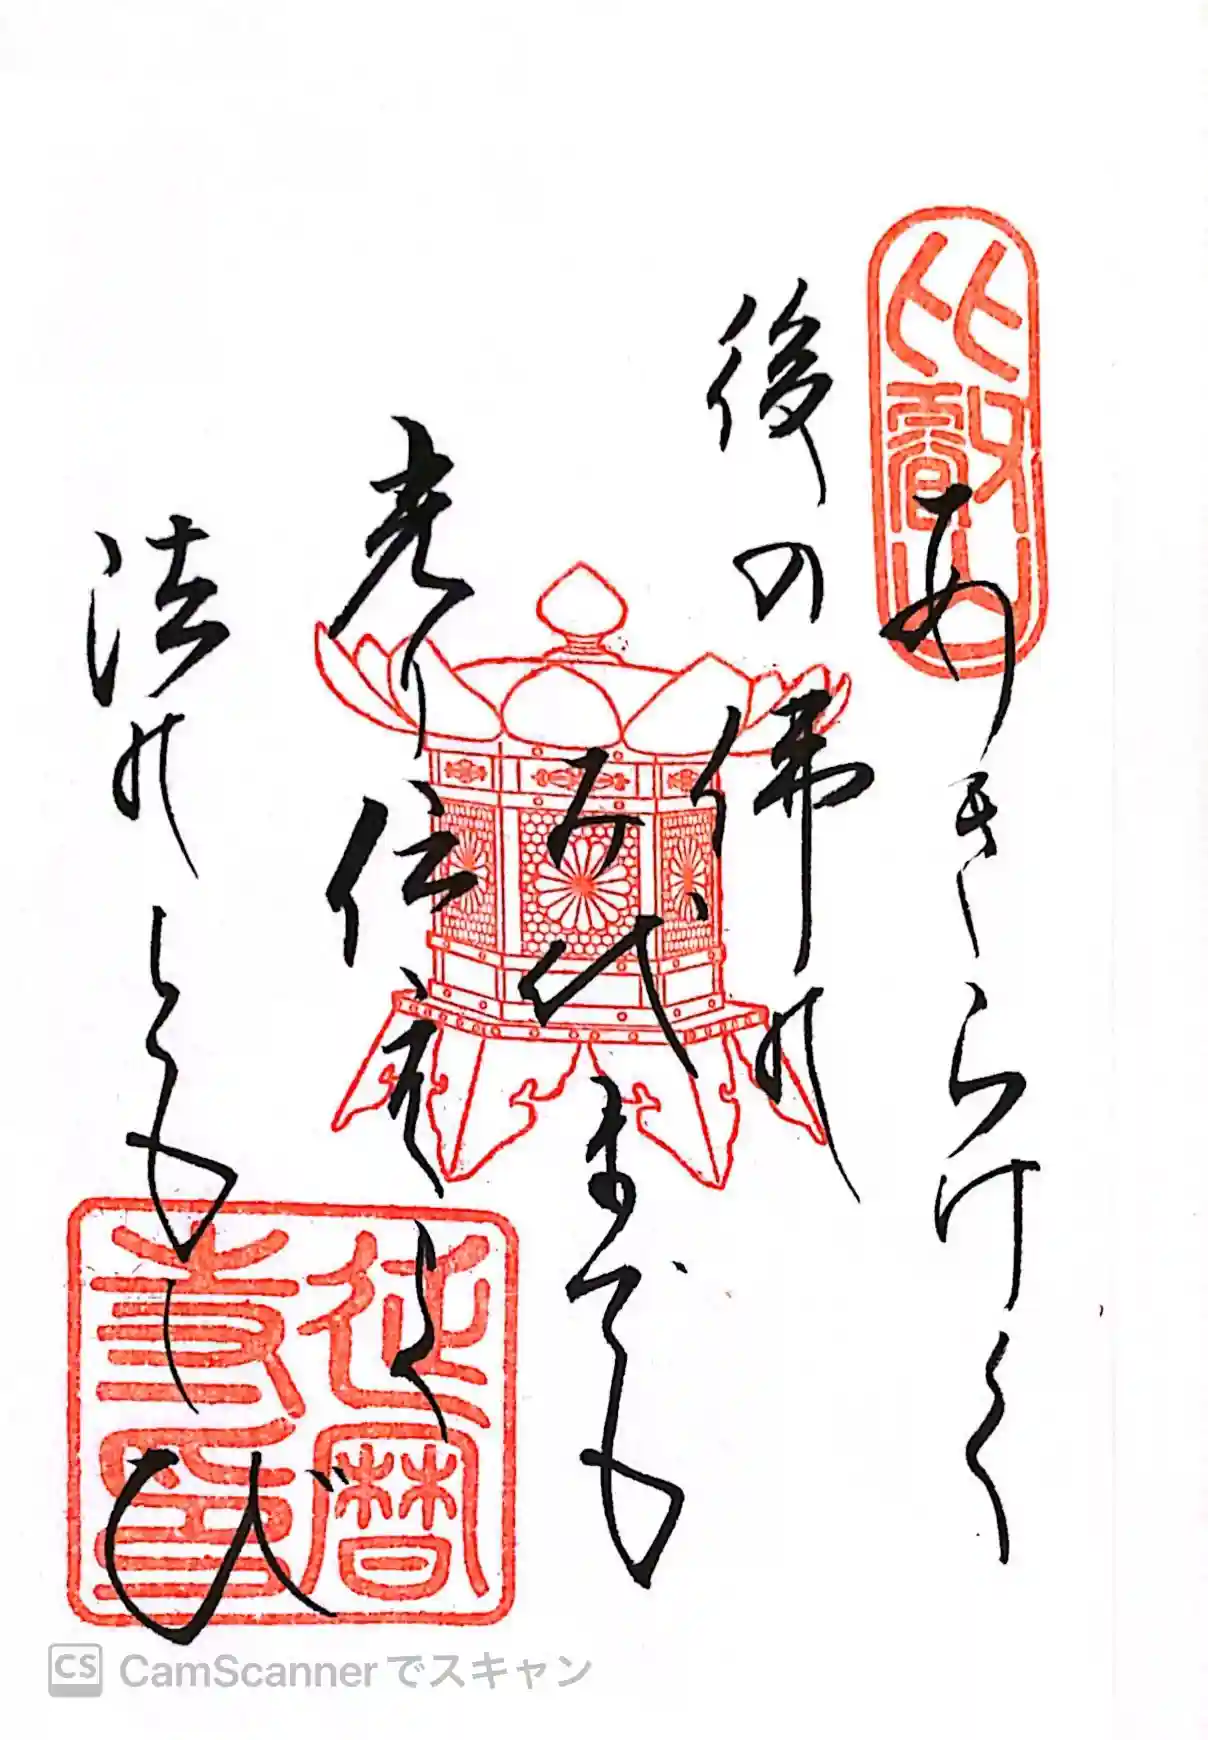 比叡山
あきらけく
後の佛の
み代までも
光り伝えよ
法のともしび
延暦
寺印
CS CamScannerでスキャン